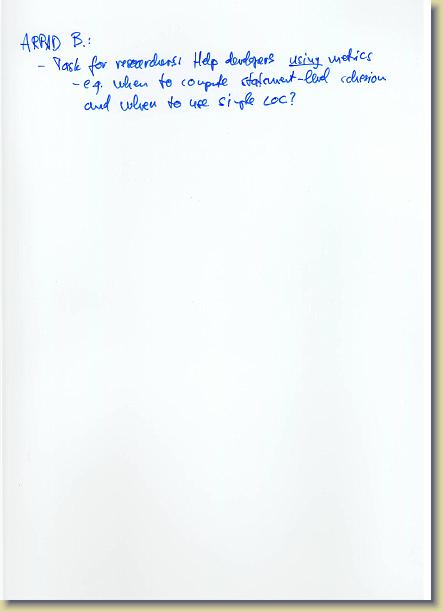 ARPAD B.:
- Task for researchers: Help developers using metrics
- e.g. when to compute statement-level cohesion
and when to use single LOC?